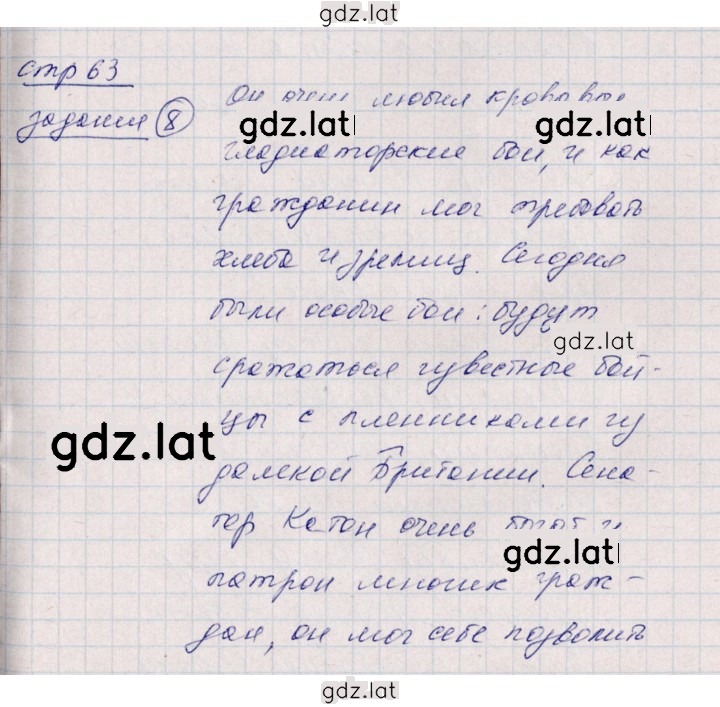 gdz.lat
стр 63
задания 8
Он очень любил кровавые
gdz.lat
gdz.lat
гладиаторские бои, и как
гражданин мог требовать
хлеба и зрелищ. Сегодня
были особые бои: будут
gdz.lat
сражаться известные бой-
цы с пленниками из
gdz.lat
далекой Британии. Сена-
тор Катон очень богат и
gdz.lat
патрон многих граж-
дан, он мог себе позволить
gdz.lat